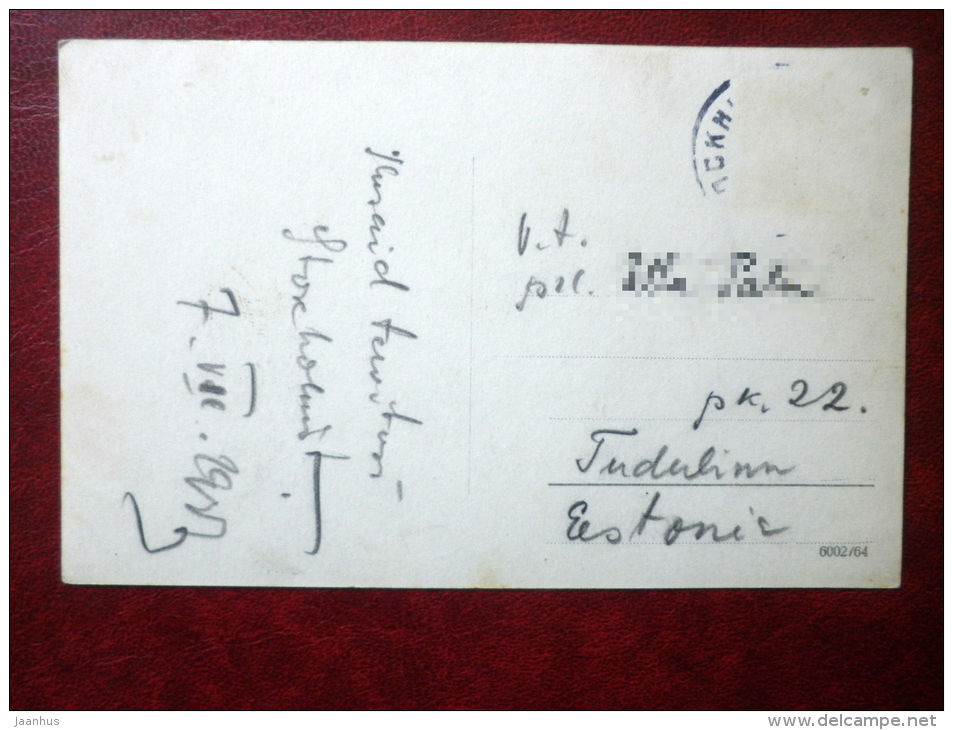 Ilusaid tervitusi
Stockholmist
7. VIII.
STOCKH.
V.t.
prl.
pk. 22.
Tudulinna
Estonia
6002/64
Jaanhus
www.delcampe.net